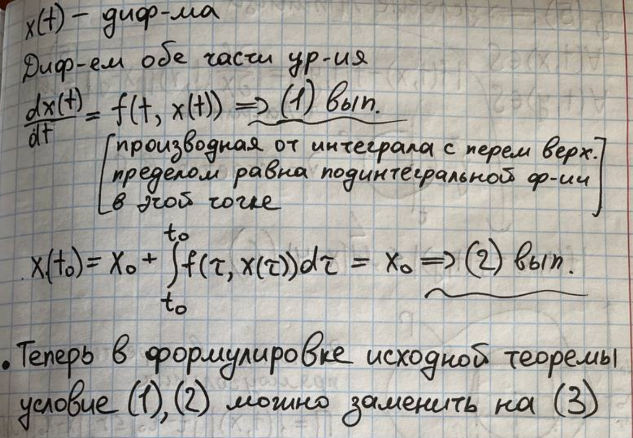 x(t) – диф-ма
Диф-ем обе части ур-ия
dx(t)/dt = f(t, x(t)) ⇒ (1) вып.
[производная от интеграла с перем верх.
пределом равна подинтегральной ф-ии
в этой точке]
x(t₀) = x₀ + ∫_{t₀}^{t₀} f(τ, x(τ))dτ = x₀ ⇒ (2) вып.
• Теперь в формулировке исходной теоремы
условие (1), (2) можно заменить на (3)